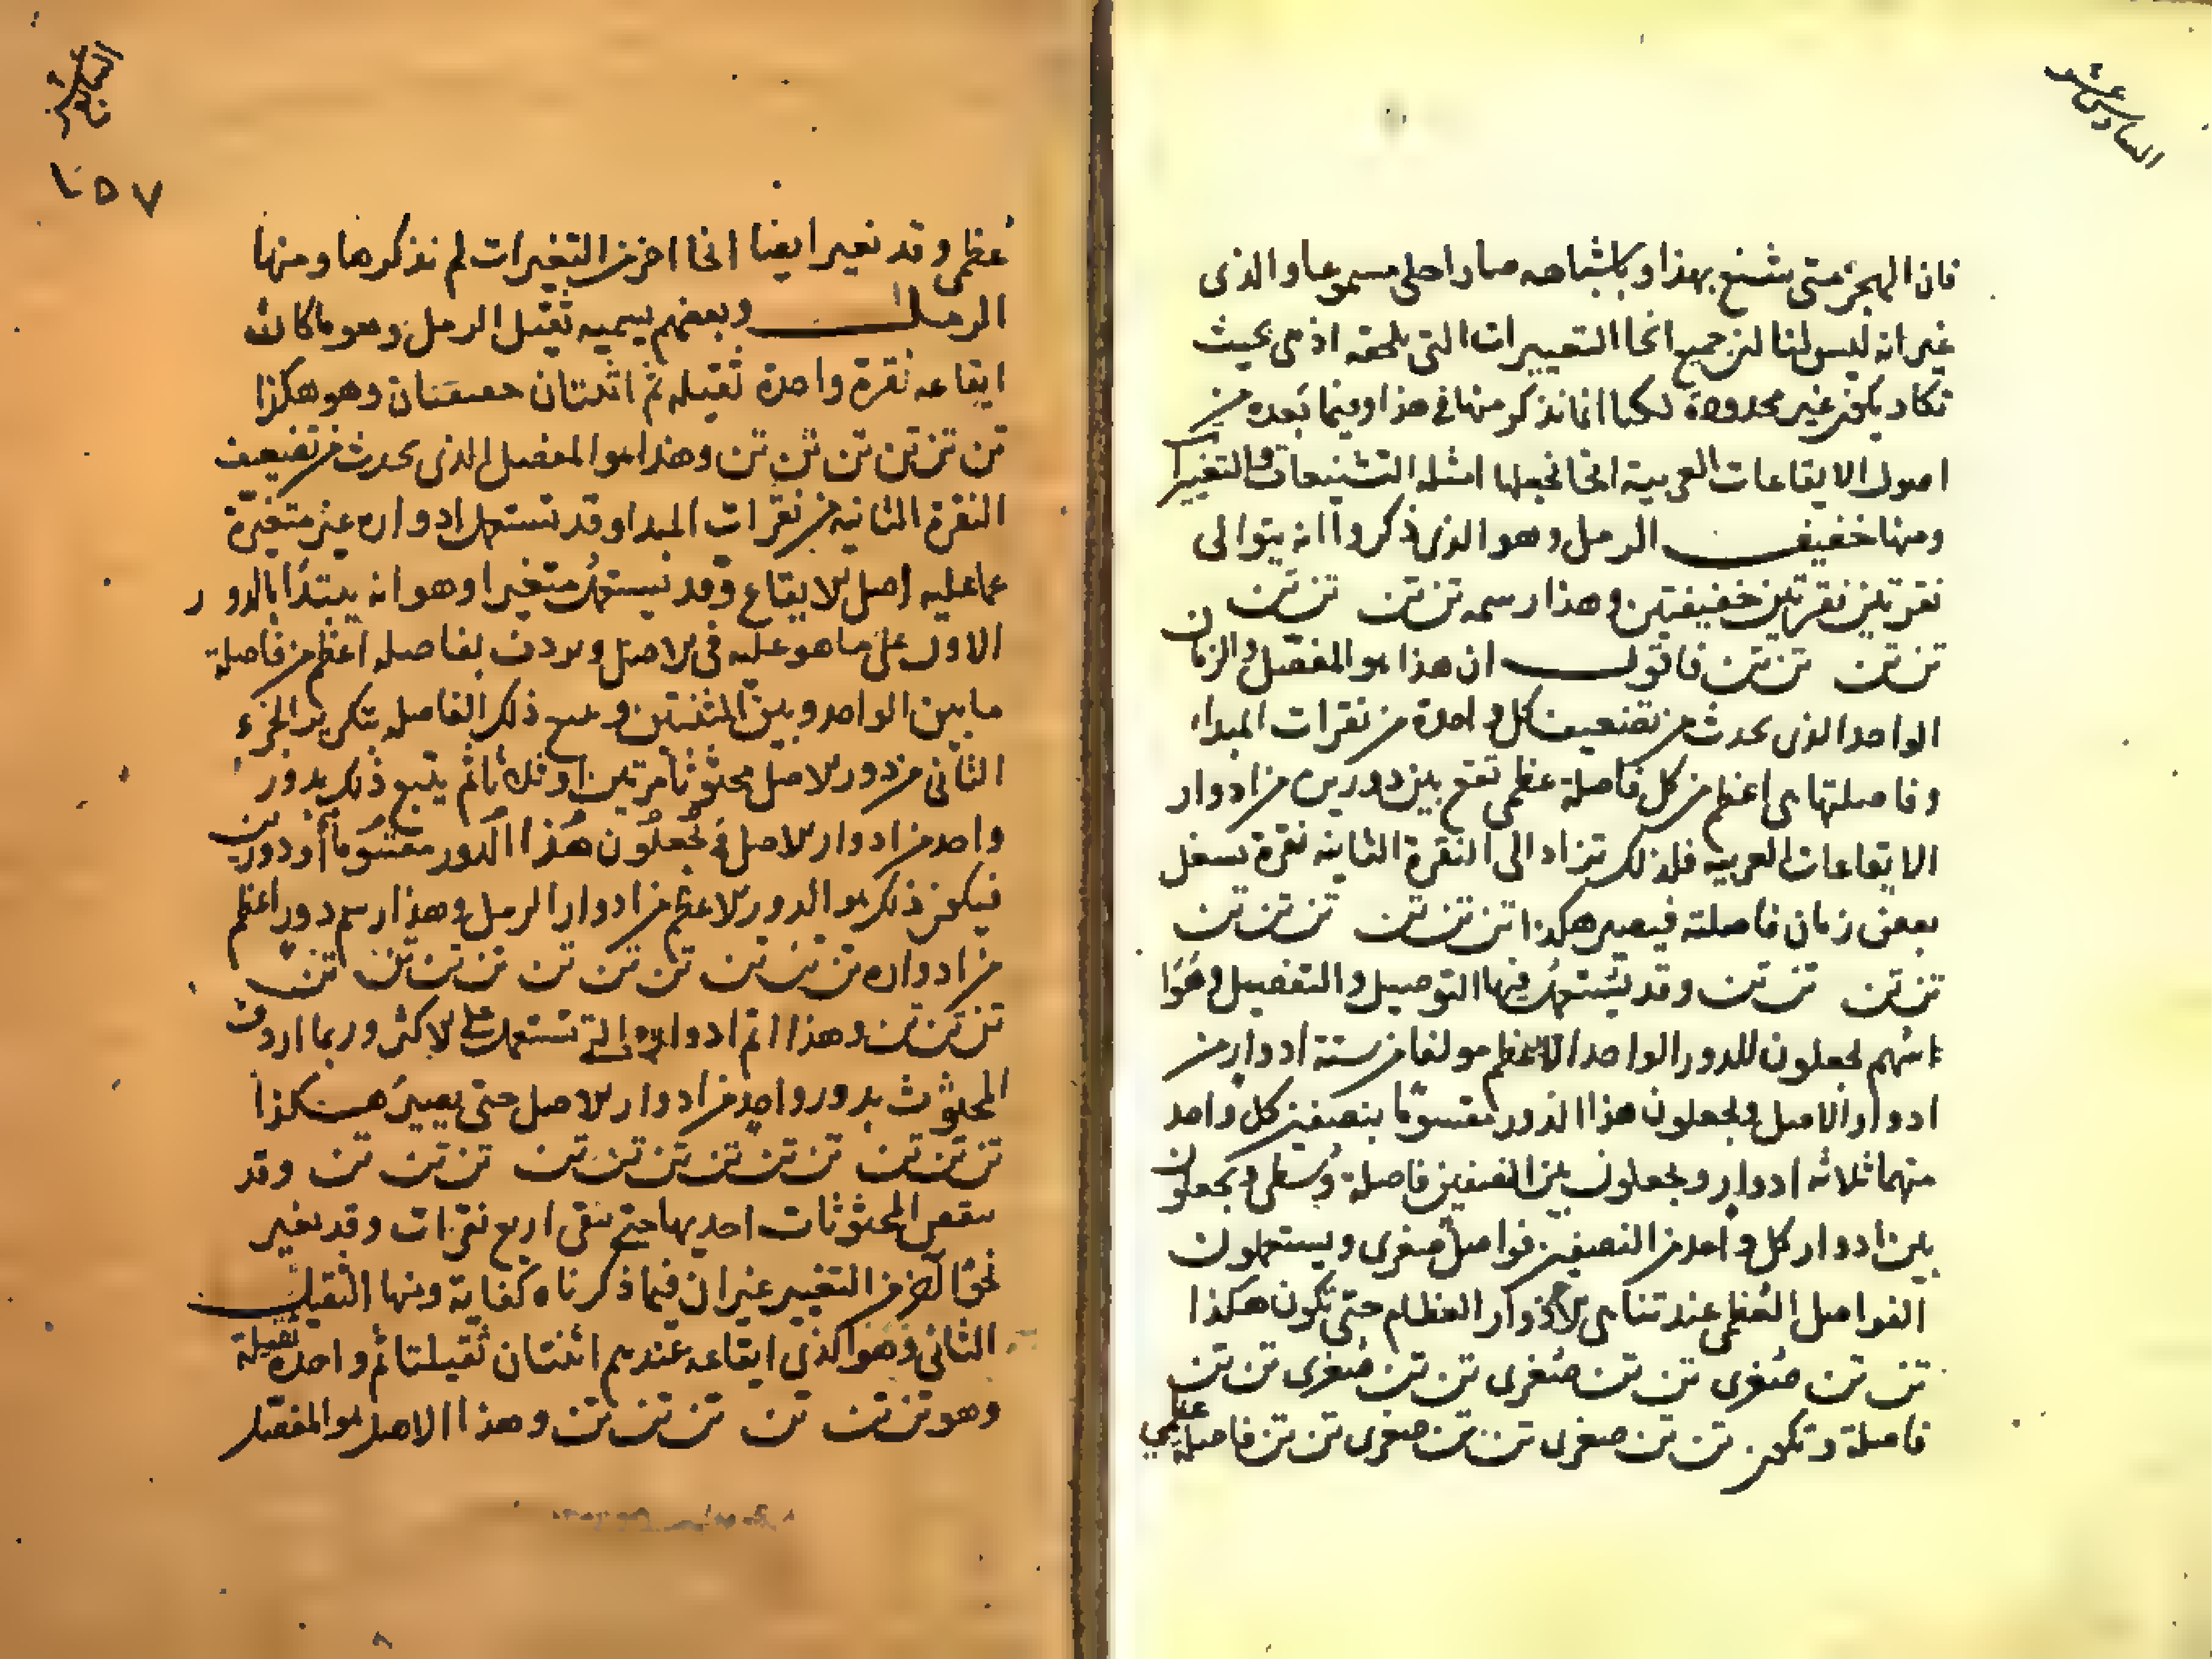 السادس عشر
فان الهجز متى شنع بهذا وباشباهه صار احلى مسموعا والذى
غير انه ليس لنا لنن جميع انحا التغييرات التى تلحقه اذ هى بحيث
تكاد يكون غير محدودة لكنا انما نذكر منها فى هذا وفيما بعده من
اصول الايقاعات العربية انحا نجعلها امثله التشنيعات والتغييرا
ومنها خفيف الرمل وهو الذى ذكروا انه يتوالى
نقرتين نقرتين خفيفتين وهذا رسمه تن تن تن تن
تن تن تن تن فاقول ان هذا هو المفصل والزمان
الواحد الذى يحدث من تضعيف كل واحدة من نقرات المبداء
وفاصلتها هى اعظم من كل فاصلة عظمى تقع بين دورين من ادوار
الايقاعات العربيه فلذلك تزاد الى النقرة الثانيه نقرة تشغل
بعض زمان فاصلته فيصير هكذا تن تن تن تن تن تن
تن تن تن تن وقد يستعمل فيها التوصيل والتفصيل وهوا
انهم يجعلون للدور الواحد الاعظم مولفا من ستة ادوار من
ادوار الاصل ويجعلون هذا الدور مقسوما بنصفين كل واحد
منهما ثلاثه ادوار ويجعلون بين النصفين فاصلة وسطى ويجعلون
بين ادوار كل واحد من النصفين فواصل صغرى ويستعملون
الفواصل العظمى عند تناهى الادوار العظام حتى تكون هكذا
تن تن صغرى تن تن صغرى تن تن صغرى تن تن
فاصلة وتكون تن تن صغرى تن تن صغرى تن تن فاصلة هي
السابع عشر
١٥٧
عظمى وقد تغير ايضا انحا اخر من التغيرات لم نذكرها ومنها
الرمل وبعضهم يسميه ثقيل الرمل وهو ما كان
ايقاعه نقرة واحدة ثقيله ثم اثنتان خفيفتان وهو هكذا
تن تن تن تن تن تن وهذا هو المفصل الذى يحدث من تضعيف
النقرة الثانيه من نقرات المبدا وقد تستعمل ادواره غير متغيرة
عما عليه اصل الايقاع وقد تستعمل متغيرا وهو انه يبتدا بالدور
الاول على ما هو عليه فى الاصل ويردف بفاصله اعظم من فاصلة
ما بين الواحد وبين المثنتين ويتبع ذلك الفاصله بتكرير الجزء
الثانى من دور الاصل محثوثا مرتين او ثلاثا ثم يتبع ذلك بدور
واحد من ادوار الاصل فيجعلون هذا الدور مقسوما
فيكون ذلك هو الدور الاعظم من ادوار الرمل وهذا رسم دور اعظم
من ادواره تن تن تن تن تن تن تن تن تن تن
تن تن تن وهذا اتم ادواره التى تستعمل على الاكثر وربما اردف
المحثوث بدور واحد من ادوار الاصل حتى يصير هكذا
تن تن تن تن تن تن تن تن تن تن تن وقد
ينقص المحثوثات احديها حتى تبقى اربع نقرات وقد تغير
نحوا اخر من التغيير غير ان فيما ذكرناه كفاية ومنها الثقيل
الثانى وهو الذى ايقاعه عندهم اثنتان ثقيلتان ثم واحدة ثقيلة
وهو تن تن تن تن تن تن وهذا الاصل هو المفصل